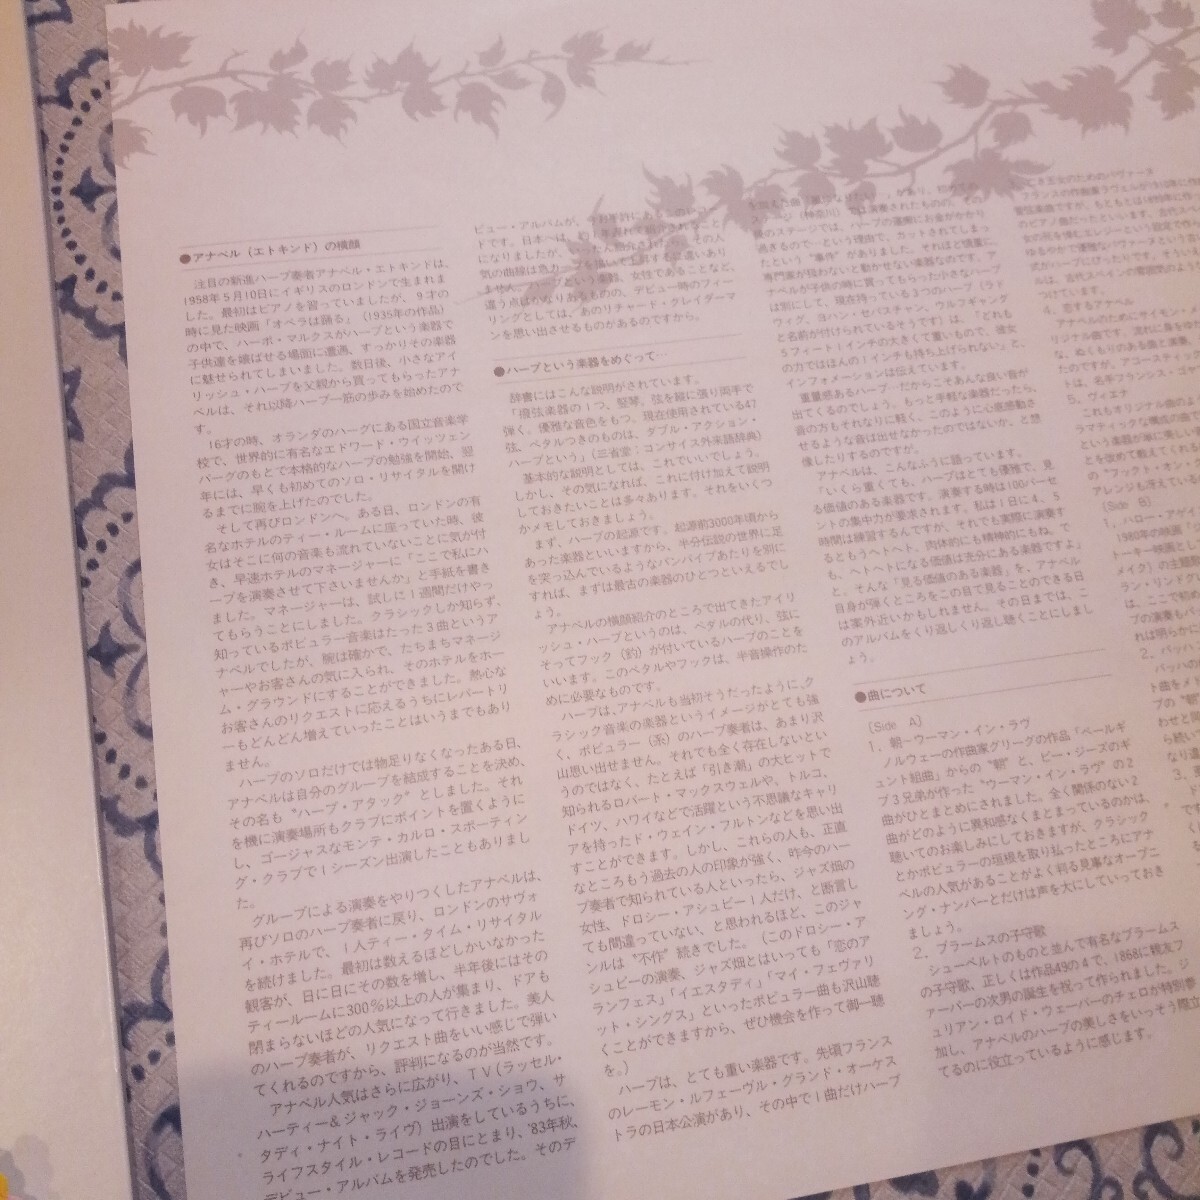 ●アナベル（エトキンド）の横顔
注目の新進ハープ奏者アナベル・エトキンドは、
1958年5月10日にイギリスのロンドンで生まれま
した。最初はピアノを習っていましたが、9才の
時に見た映画「オペラは踊る」（1935年の作品）
の中で、ハーポ・マルクスがハープという楽器で
子供達を嬉ばせる場面に遭遇、すっかりその楽器
に魅せられてしまいました。数日後、小さなアイ
リッシュ・ハープを父親から買ってもらったアナ
ベルは、それ以降ハープ一筋の歩みを始めたので
す。
16才の時、オランダのハーグにある国立音楽学
校で、世界的に有名なエドワード・ウイッツェン
バーグのもとで本格的なハープの勉強を開始、翌
年には、早くも初めてのソロ・リサイタルを開け
るまでに腕を上げたのでした。
そして再びロンドンへ。ある日、ロンドンの有
名なホテルのティー・ルームに座っていた時、彼
女はそこに何の音楽も流れていないことに気が付
き、早速ホテルのマネージャーに「ここで私にハ
ープを演奏させて下さいませんか」と手紙を書き
ました。マネージャーは、試しに1週間だけやっ
てもらうことにしました。クラシックしか知らず、
知っているポピュラー音楽はたった3曲というア
ナベルでしたが、腕は確かで、たちまちマネージ
ャーやお客さんの気に入られ、そのホテルをホー
ム・グラウンドにすることができました。熱心な
お客さんのリクエストに応えるうちにレパートリ
ーもどんどん増えていったことはいうまでもあり
ません。
ハープのソロだけでは物足りなくなったある日、
アナベルは自分のグループを結成することを決め、
その名も〝ハープ・アタック〟としました。それ
を機に演奏場所もクラブにポイントを置くように
し、ゴージャスなモンテ・カルロ・スポーティン
グ・クラブで1シーズン出演したこともありまし
た。
グループによる演奏をやりつくしたアナベルは、
再びソロのハープ奏者に戻り、ロンドンのサヴォ
イ・ホテルで、1人ティー・タイム・リサイタル
を続けました。最初は数えるほどしかいなかった
観客が、日に日にその数を増し、半年後にはその
ティールームに300%以上の人が集まり、ドアも
閉まらないほどの人気になって行きました。美人
のハープ奏者が、リクエスト曲をいい感じで弾い
てくれるのですから、評判になるのが当然です。
アナベル人気はさらに広がり、TV（ラッセル・
ハーティー&ジャック・ジョーンズ・ショウ、サ
タディ・ナイト・ライヴ）出演をしているうちに、
ライフスタイル・レコードの目にとまり、'83年秋、
デビュー・アルバムを発売したのでした。そのデ
ビュー・アルバムが、
ドです。日本へは、約1年遅れて紹介されること
になりましたが、
気の曲線は急カーブを描いて上昇する
ません。ハープという楽器、女性であることなど、
違う点はかなりあるものの、デビュー時のフィー
リングとしては、あのリチャード・クレイダーマ
ンを思い出させるものがあるのですから。
●ハープという楽器をめぐって…
辞書にはこんな説明がされています。
「撥弦楽器の1つ、竪琴、弦を縦に張り両手で
弾く。優雅な音色をもつ。現在使用されている47
弦、ペタルつきのものは、ダブル・アクション・
ハープという」（三省堂：コンサイス外来語辞典）
基本的な説明としては、これでいいでしょう。
しかし、その気になれば、これに付け加えて説明
しておきたいことは多々あります。それをいくつ
かメモしておきましょう。
まず、ハープの起源です。起源前3000年頃から
あった楽器といいますから、半分伝説の世界に足
を突っ込んでいるようなパンパイプあたりを別に
すれば、まずは最古の楽器のひとつといえるでし
ょう。
アナベルの横顔紹介のところで出てきたアイリ
ッシュ・ハープというのは、ペダルの代り、弦に
そってフック（釣）が付いているハープのことを
いいます。このペタルやフックは、半音操作のた
めに必要なものです。
ハープは、アナベルも当初そうだったように、ク
ラシック音楽の楽器というイメージがとても強
く、ポピュラー（系）のハープ奏者は、あまり沢
山思い出せません。それでも全く存在しないとい
うのではなく、たとえば「引き潮」の大ヒットで
知られるロバート・マックスウェルや、トルコ、
ドイツ、ハワイなどで活躍という不思議なキャリ
アを持ったド・ウェイン・フルトンなどを思い出
すことができます。しかし、これらの人も、正直
なところもう過去の人の印象が強く、昨今のハー
プ奏者で知られている人といったら、ジャズ畑の
女性、ドロシー・アシュビー1人だけ、と断言し
ても間違っていない、と思われるほど、このジャ
ンルは〝不作〟続きでした。（このドロシー・ア
シュビーの演奏、ジャズ畑とはいっても「恋のア
ランフェス」「イエスタディ」「マイ・フェヴァリ
ット・シングス」といったポピュラー曲も沢山聴
くことができますから、ぜひ機会を作って御一聴
を。）
ハープは、とても重い楽器です。先頃フランス
のレーモン・ルフェーヴル・グランド・オーケス
トラの日本公演があり、その中で1曲だけハープ
ステージ（神奈川）では演奏されたものの、その
後のステージでは、ハープの運搬にお金がかかり
過ぎるので…という理由で、カットされてしまっ
たという〝事件〟がありました。それほど慎重に、
専門家が扱わないと動かせない楽器なのです。ア
ナベルが子供の時に買ってもらった小さなハープ
は別にして、現在持っている3つのハープ（ラド
ウィグ、ヨハン・セバスチャン、ウルフギャング
と名前が付けられているそうです）は、「どれも
5フィート1インチの大きくて重いもので、彼女
の力ではほんの1インチも持ち上げられない」と、
インフォメーションは伝えています。
重量感あるハープ…だからこそあんな良い音が
出てくるのでしょう。もっと手軽な楽器だったら、
音の方もそれなりに軽く、このように心底感動さ
せるような音は出せなかったのではないか、と想
像したりするのですが。
アナベルは、こんなふうに語っています。
「いくら重くても、ハープはとても優雅で、見
る価値のある楽器です。演奏する時は100パーセ
ントの集中力が要求されます。私は1日に4、5
時間は練習するんですが、それでも実際に演奏す
るともうヘトヘト。肉体的にも精神的にもね。で
も、ヘトヘトになる価値は充分にある楽器ですよ」
と。そんな「見る価値のある楽器」を、アナベル
自身が弾くところをこの目で見ることのできる日
は案外近いかもしれません。その日までは、こ
のアルバムをくり返しくり返し聴くことにしまし
ょう。
●曲について
〔Side A〕
1、朝－ウーマン・イン・ラヴ
ノルウェーの作曲家グリーグの作品「ペールギ
ュント組曲」からの〝朝〟と、ビー・ジーズのギ
ブ3兄弟が作った〝ウーマン・イン・ラヴ〟の2
曲がひとまとめにされました。全く関係のない2
曲がどのように異和感なくまとまっているのかは、
聴いてのお楽しみにしておきますが、クラシック
とかポピュラーの垣根を取り払ったところにアナ
ベルの人気があることがよく判る見事なオープニ
ング・ナンバーとだけは声を大にしていっておき
ましょう。
2．ブラームスの子守歌
シューベルトのものと並んで有名なブラームス
の子守歌、正しくは作品49の4で、1868に親友フ
ァーバーの次男の誕生を祝って作られました。ジ
ュリアン・ロイド・ウェーバーのチェロが特別参
加し、アナベルのハープの美しさをいっそう際立
てるのに役立っているように感じます。
王女のためのパヴァーヌ
フランスの作曲家ラヴェルが
管弦楽曲ですが、もともとは1899年に
のピアノ曲だったといいます。古代スペ
女の死を悼むエレジーという設定で作
ゆるやかで優雅なパヴァーヌという
式がハープにぴったりです。そういえ
は、古代スペインの雰囲気のよう
つけています。
4．恋するアナベル
アナベルのためにサイモン・
リジナル曲です。流れに
な、ぬくもりのある曲と演奏、
たのですが、アコースティック
トは、名手フランシス・ゴヤ
5．ヴィエナ
これもオリジナル曲のよ
ラマティックな構成の曲で
という楽器が単に美しい
とを改めて教えてくれる
の〝フックト・オン・
アレンジも冴えている
〔Side B〕
1．ハロー・アゲイ
1980年の映画「
トーキー映画とし
メイク）の主題
ラン・リンドグ
は、ここで初め
プの演奏もバ
れは明らかに
2．バッハ
バッハの
ト曲をメド
プの〝朝
わせと同
ら続い
なり並
3．